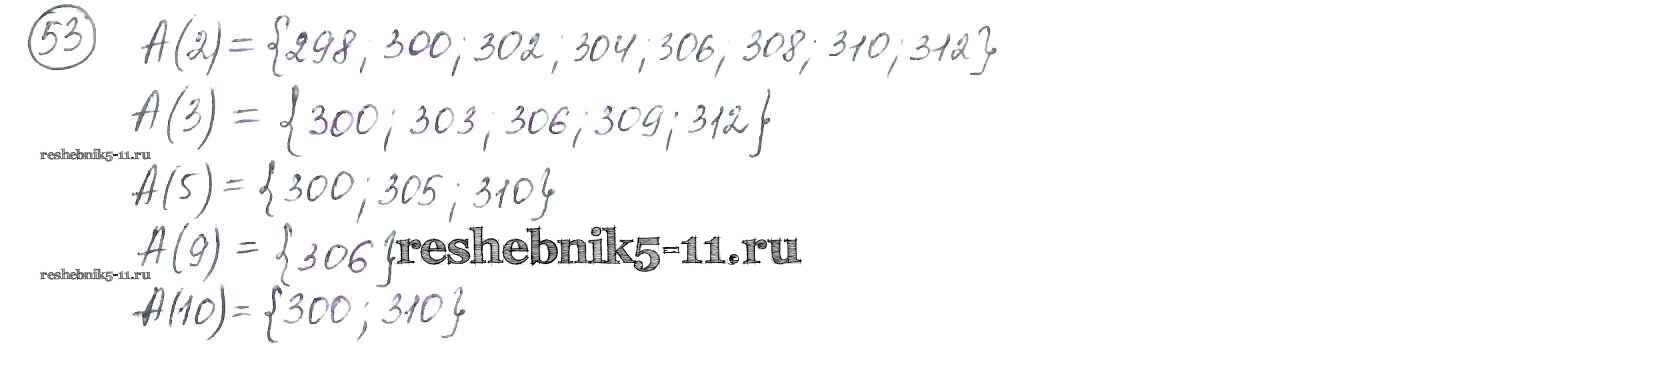 53 A(2) = {298; 300; 302; 304; 306; 308; 310; 312}
A(3) = {300; 303; 306; 309; 312}
reshebnik5-11.ru
A(5) = {300; 305; 310}
A(9) = {306} reshebnik5-11.ru
reshebnik5-11.ru
A(10) = {300; 310}